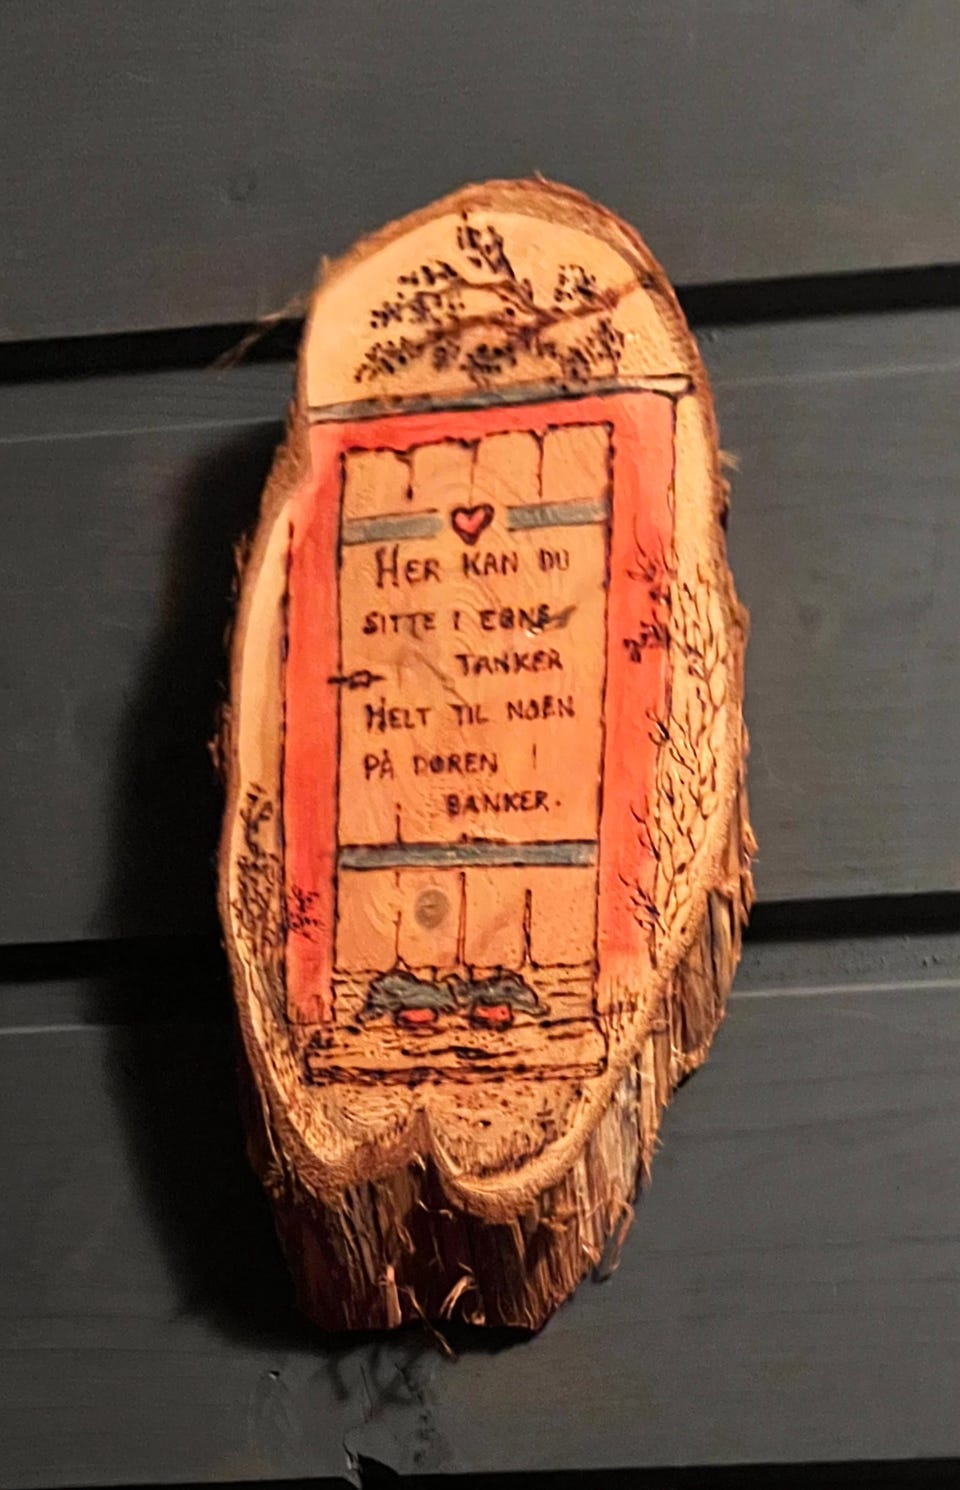 HER KAN DU
SITTE I EGNE
TANKER
HELT TIL NOEN
PÅ DØREN
BANKER.